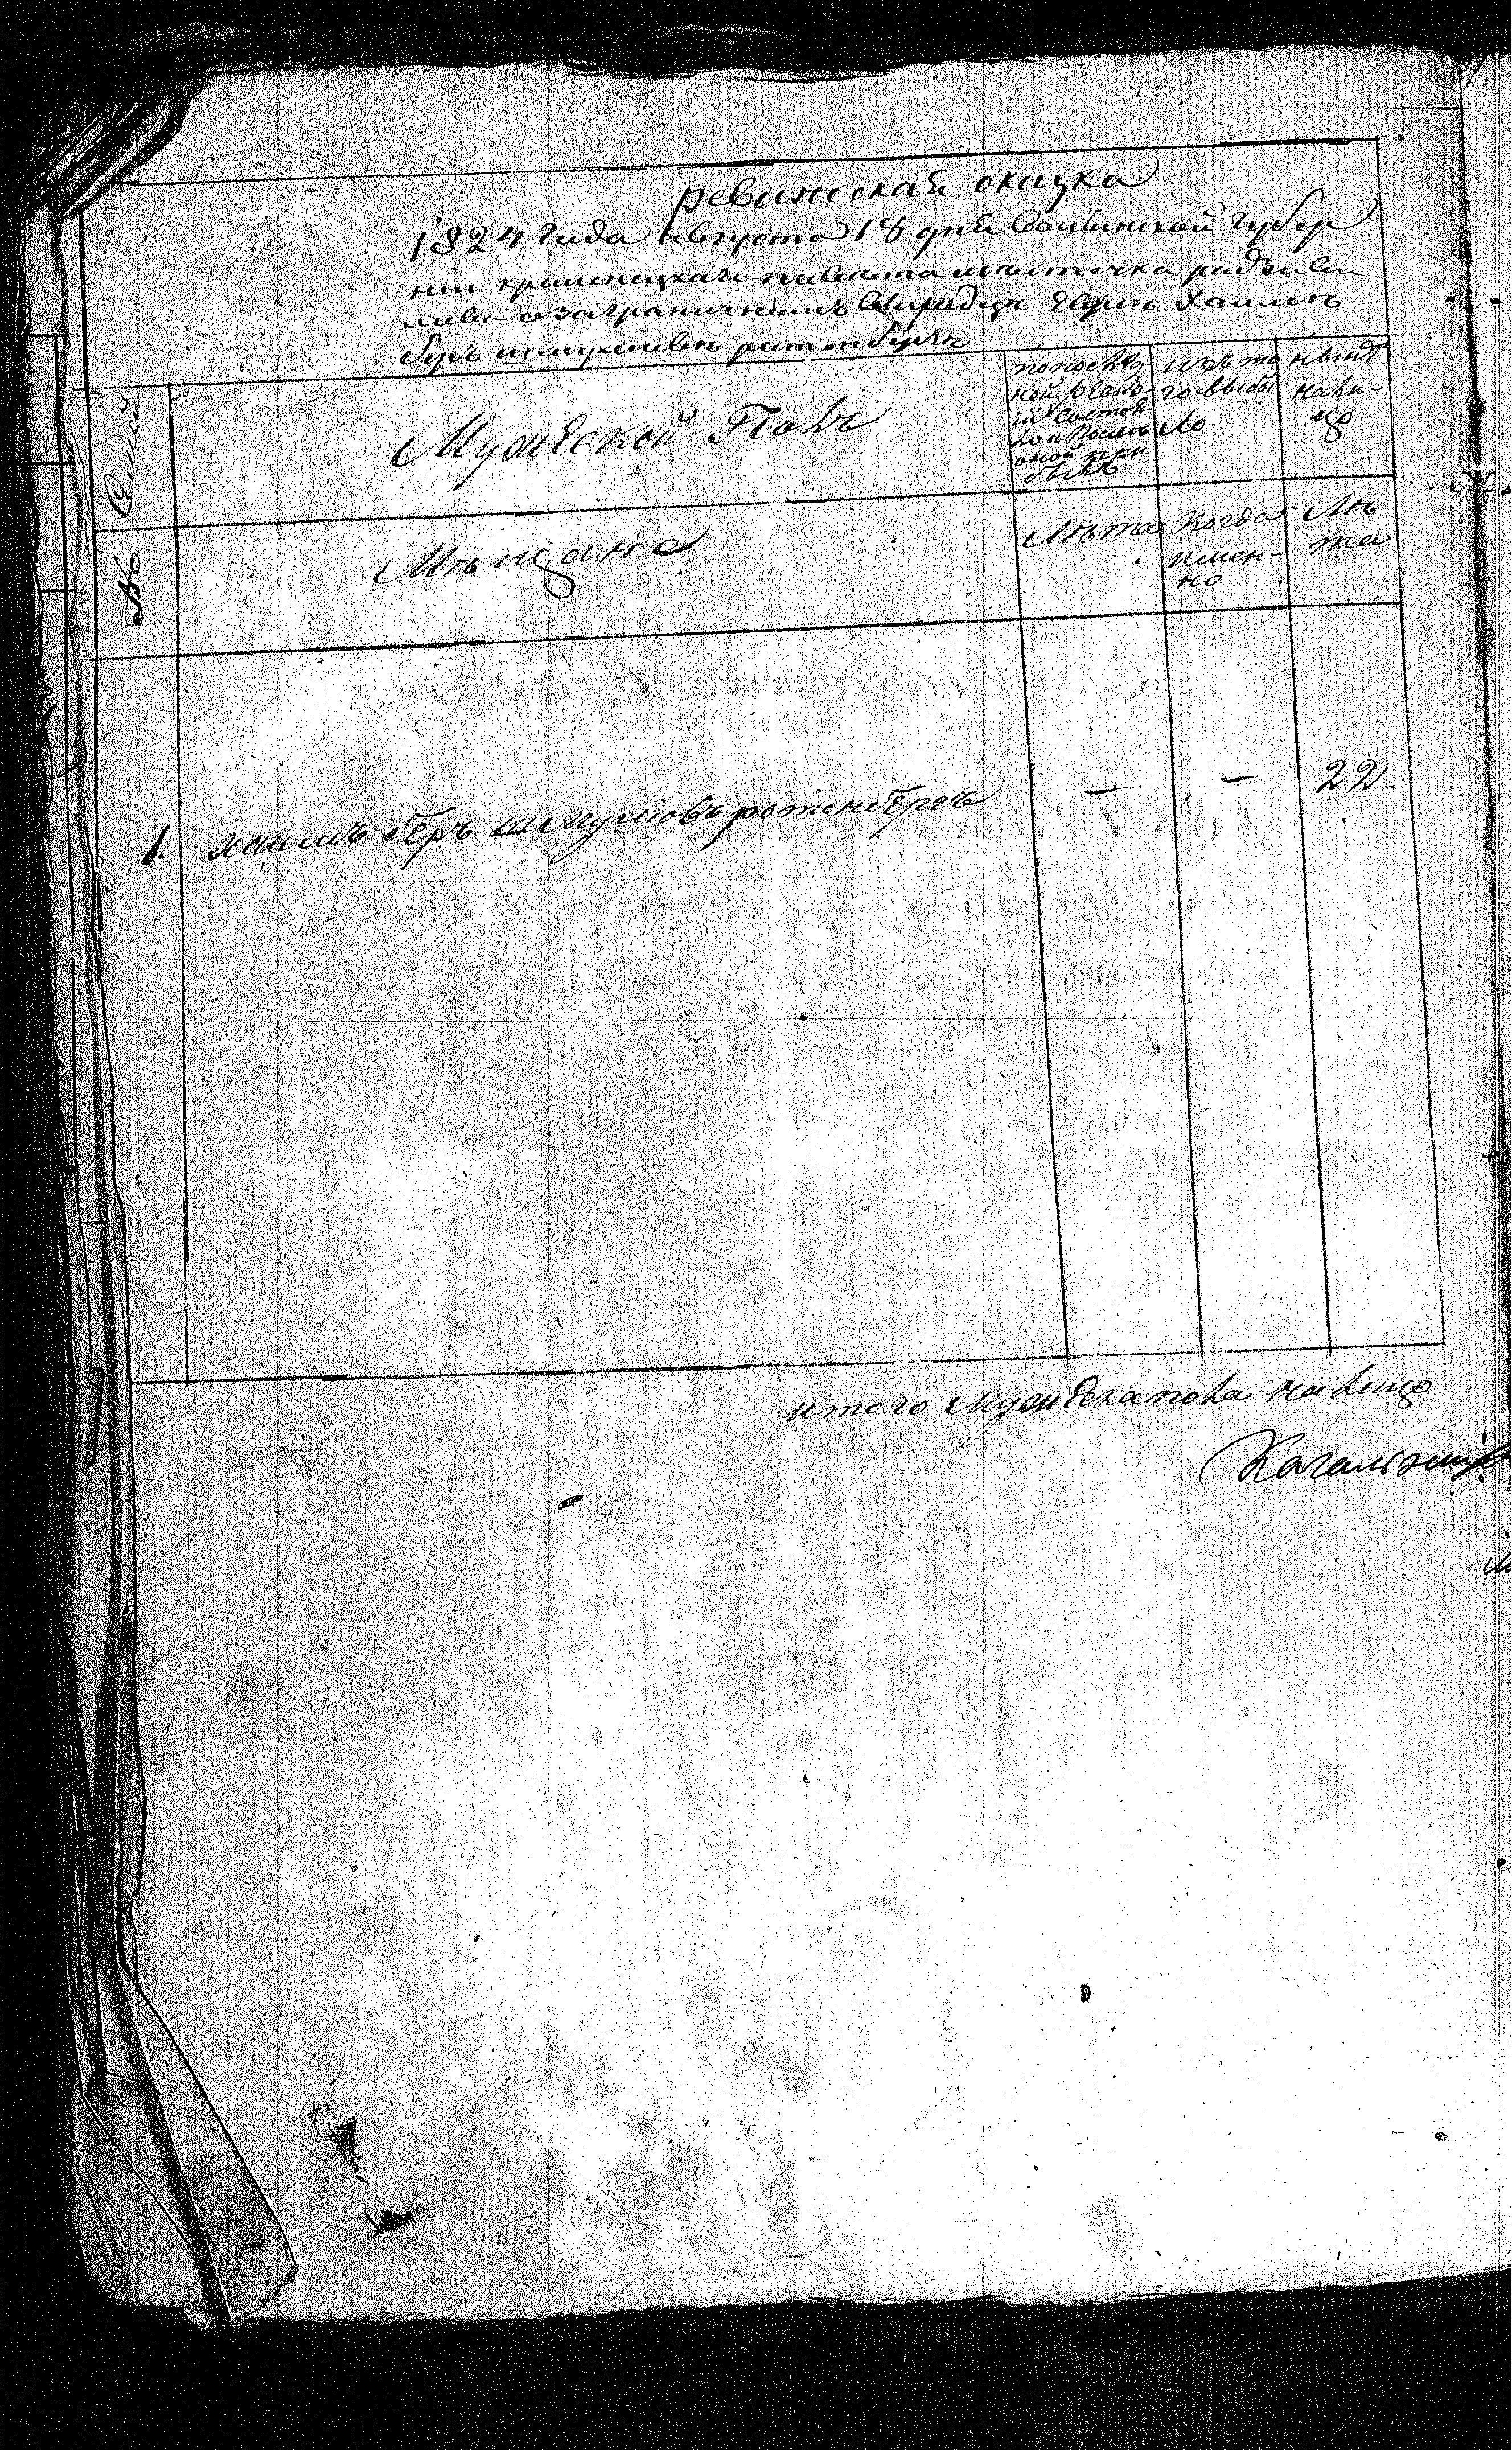 ревижская сказка
1824 года августа 18 дня Волынской губер
ніи кременецкаго повѣта мѣстечка радзиви
лова о заграничномъ еврѣе Хаимѣ
беръ шмулиовѣ ротенберге
№ Семей
Мужеской Полъ
по послѣд-
ной ревиз-
іи состоя-
ло и послѣ
оной при
было
изъ то
го выбы
ло
нынѣ
на ли-
цо
Мѣщане
Лѣта
Когда
имен-
но
Лѣ
та
1. хаимъ беръ шмулиовъ ротенбергъ — — 22.
итого мужеска пола на лицо